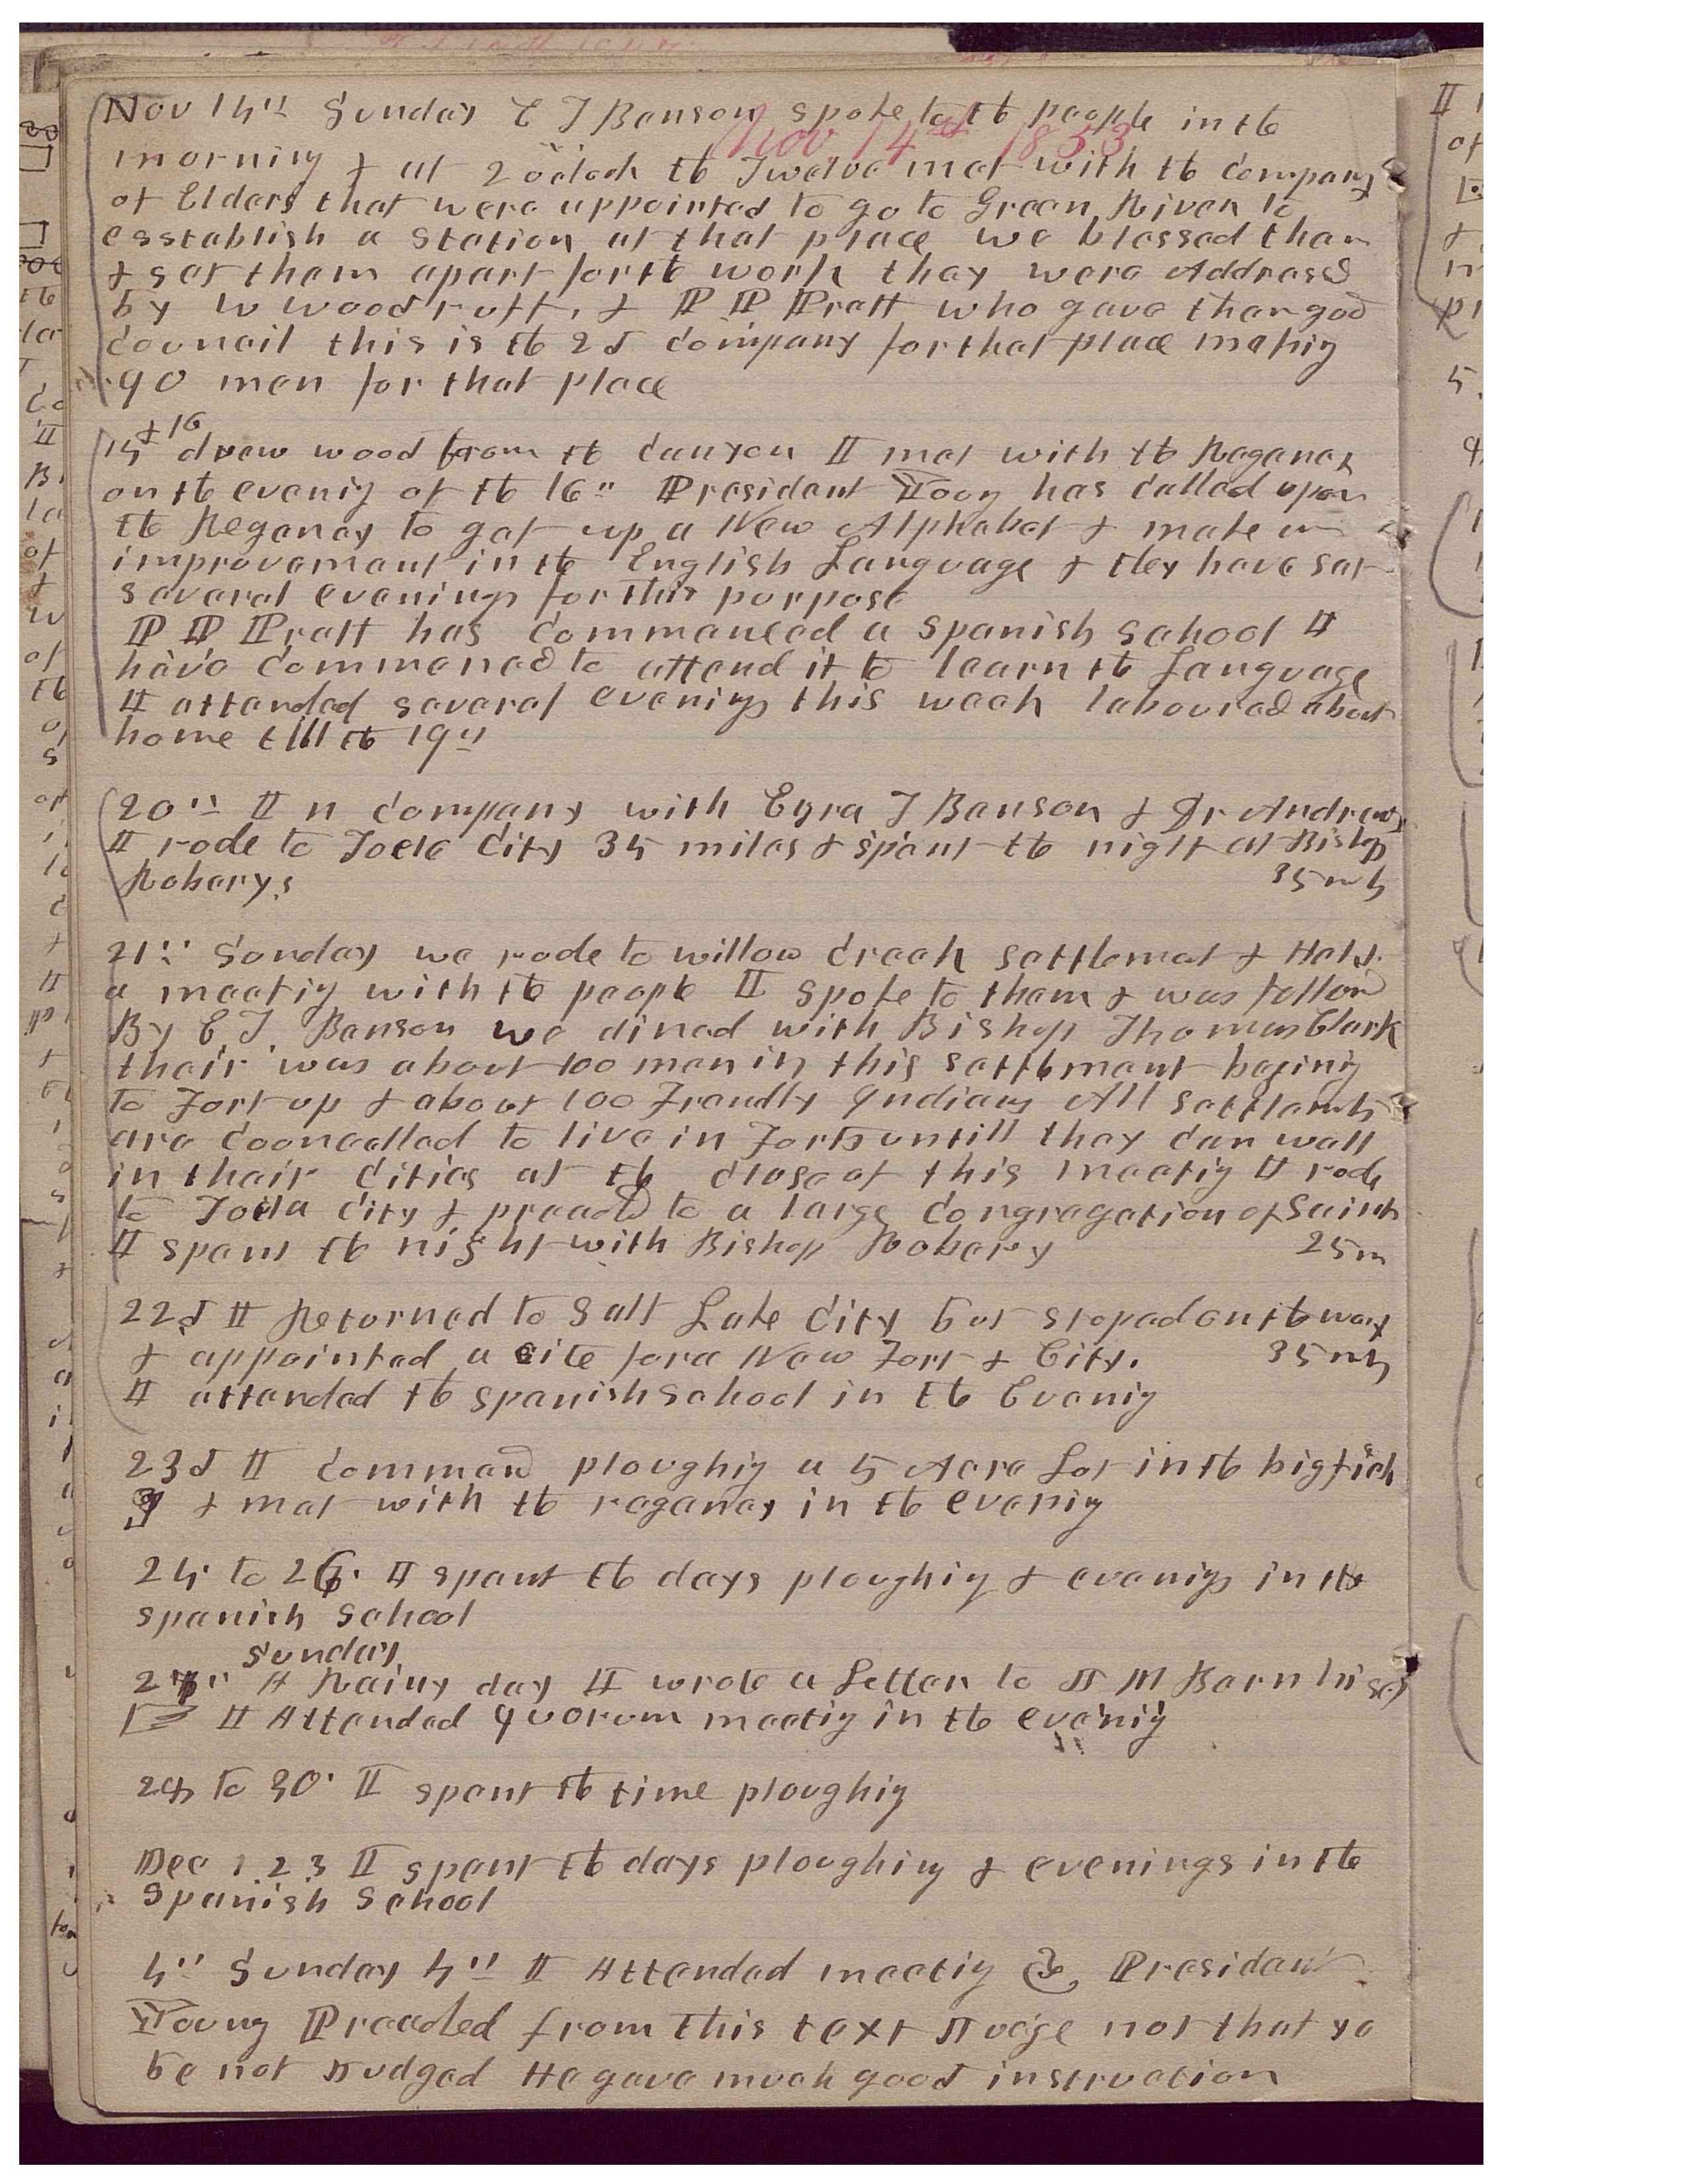 Nov 14" Sunday E T Benson spoke to the people in the
Nov 14th 1853
morning & at 2 oclock the Twelve met with the company
of Elders that were appointed to go to Green River to
esstablish a station at that place we blessed them
& set them apart for the work they were Addressd
by W Woodruff, & P P Pratt who gave them good
councail this is the 2d company for that place making
90 men for that place
15 & 16 drew wood from the canyon I met with the Regency
on the evening of the 16" President Young has called upon
the Regency to get up a New Alphabet & make an
improvement in the English Language & they have sat
several evenings for this purpose
P P Pratt has commenced a Spanish school I
have commenced to attend it to learn the Language
I attended several evenings this week laboured about
home till the 19"
20" I n company with Ezra T Benson & Dr Andrews
I rode to Toele City 35 miles & spent the night at Bishop
Roberys. 35 mls
21" Sunday we rode to willow creek settlemet & Held
a meeting with the people I spoke to them & was follow{d}
By E. T. Benson we dined with Bishop Thomas Clark
their was about 100 men in this settlement begining
to Fort up & about 100 Frendly Indians All settlemts
are councelled to live in Forts untill they can wall
in their cities at the close of this meeting I rode
to Toela City & preached to a large congregation of Saints
I spent the night with Bishop Robery 25 m
22d I Returned to Salt Lake City but stoped on the way
& appointed a site for a New Fort & City. 35 mls
I attended the Spanish school in the Evening
23d I commend ploughing a 5 Acre Lot in the big field
& met with the regency in the evening
24 to 26 I spent the days ploughing & evenings in the
spanish school
Sunday
27" A Rainy day I wrote a Letter to J M Bernhisel
I Attended quorum meeting in the evening
28 to 30 I spent the time ploughing
Dec 1. 2 3 I spent the days ploughing & evenings in the
Spanish School
4" Sunday 4" I Attended meeting & President
Young Preached from this text Judge not that ye
be not Judged He gave much good instruction